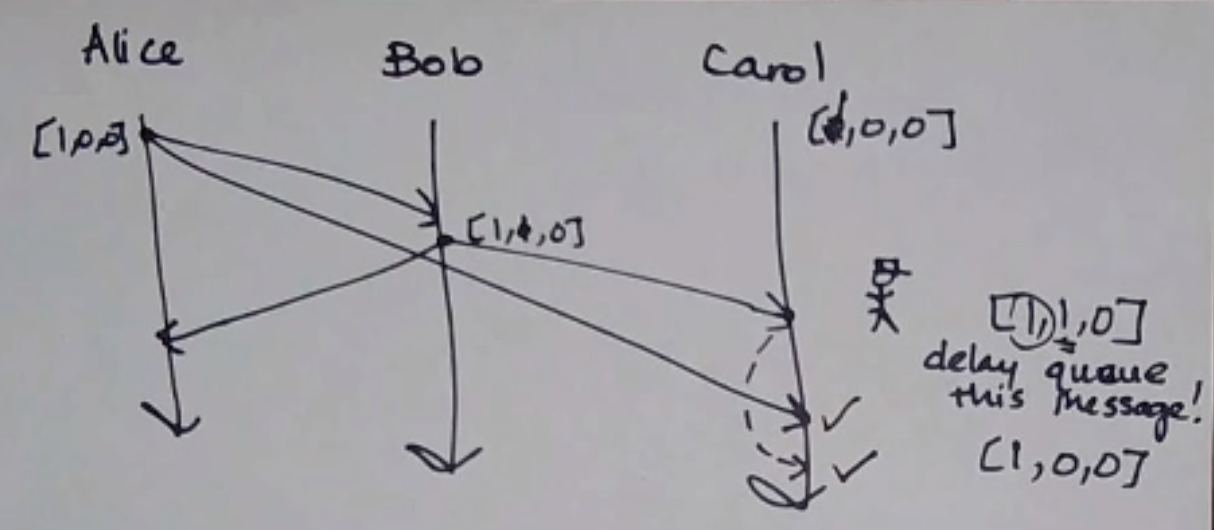 Alice Bob Carol
[1,0,0] [1,0,0]
[1,1,0]
[1,1,0]
delay queue
this message!
[1,0,0]